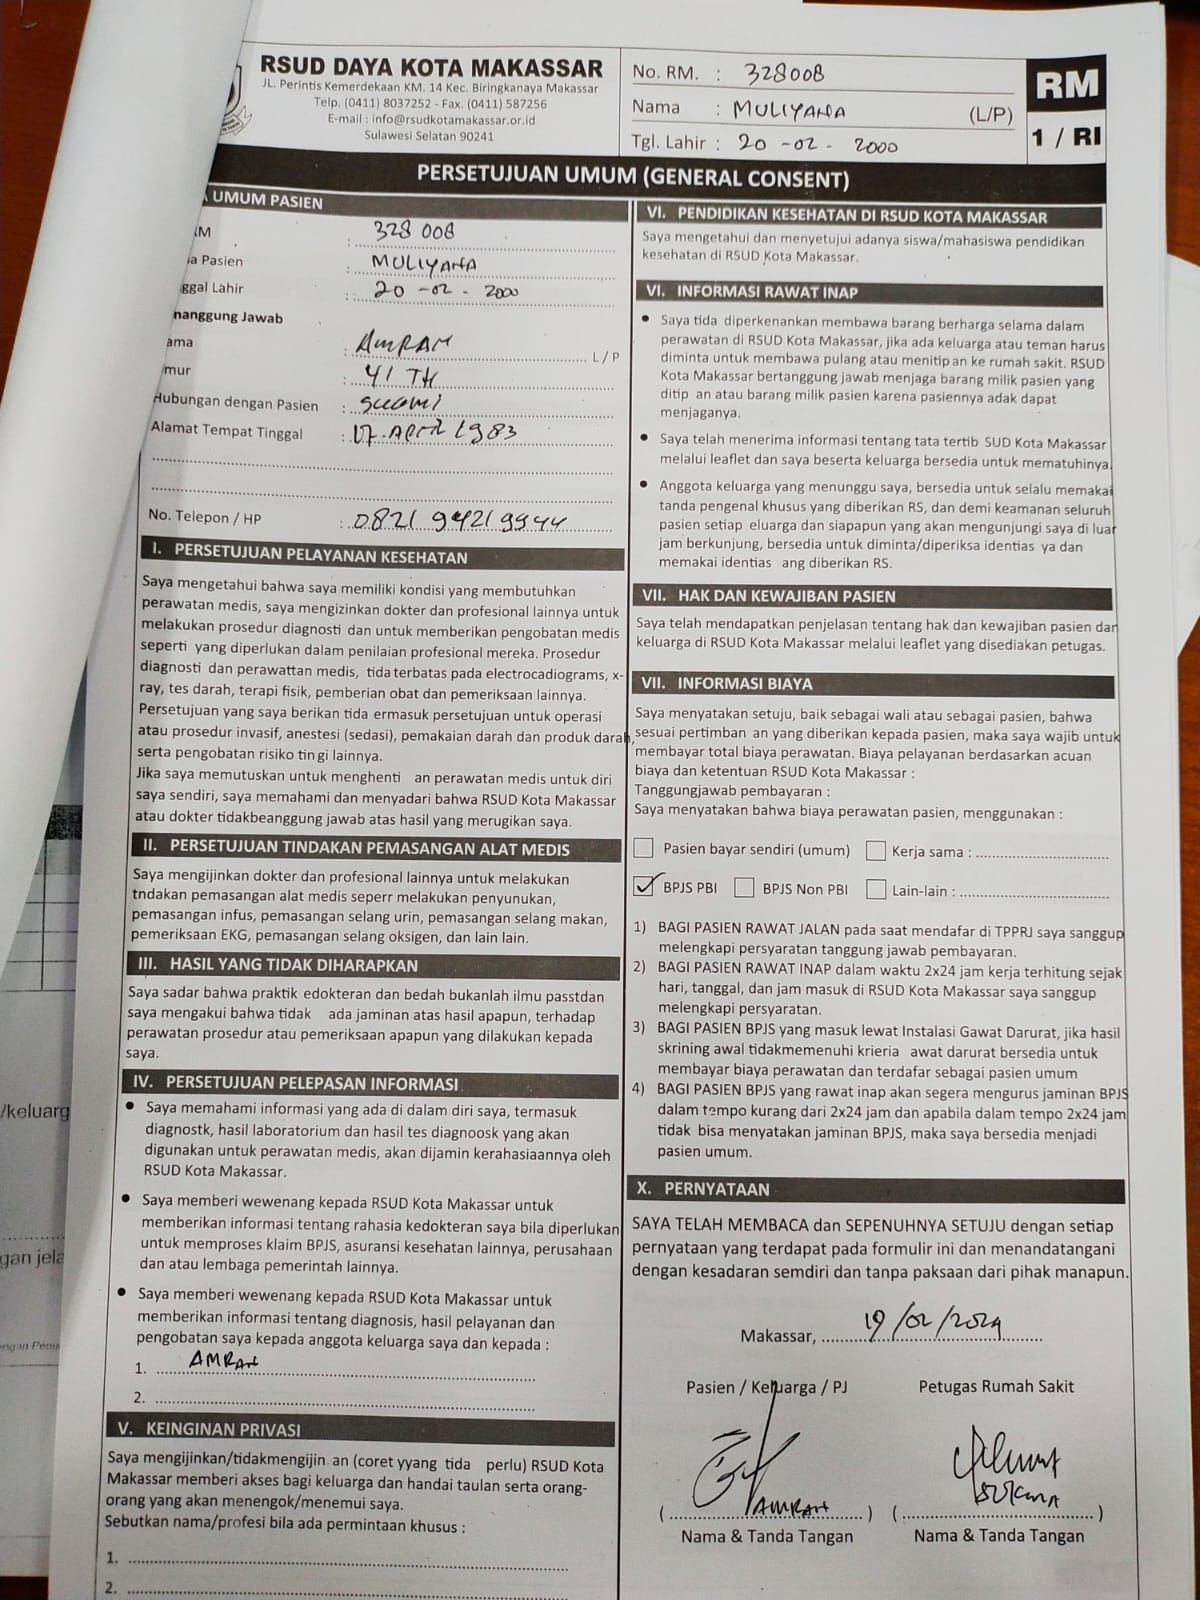 RSUD DAYA KOTA MAKASSAR
JL. Perintis Kemerdekaan KM. 14 Kec. Biringkanaya Makassar
Telp. (0411) 8037252 - Fax. (0411) 587256
E-mail : info@rsudkotamakassar.or.id
Sulawesi Selatan 90241
No. RM. : 328008
Nama : MULIYANA (L/P)
Tgl. Lahir : 20 - 02 - 2000
RM
1 / RI
PERSETUJUAN UMUM (GENERAL CONSENT)
UMUM PASIEN
RM : 328 008
a Pasien : MULIYANA
ggal Lahir : 20 - 02 - 2000
nanggung Jawab
ama : AMRAN L / P
mur : 41 TH
Hubungan dengan Pasien : SUAMI
Alamat Tempat Tinggal : 07 - APRIL 1983
No. Telepon / HP : 0821 9421 9944
I. PERSETUJUAN PELAYANAN KESEHATAN
Saya mengetahui bahwa saya memiliki kondisi yang membutuhkan
perawatan medis, saya mengizinkan dokter dan profesional lainnya untuk
melakukan prosedur diagnosti dan untuk memberikan pengobatan medis
seperti yang diperlukan dalam penilaian profesional mereka. Prosedur
diagnosti dan perawattan medis, tida terbatas pada electrocadiograms, x-
ray, tes darah, terapi fisik, pemberian obat dan pemeriksaan lainnya.
Persetujuan yang saya berikan tida ermasuk persetujuan untuk operasi
atau prosedur invasif, anestesi (sedasi), pemakaian darah dan produk darah,
serta pengobatan risiko tin gi lainnya.
Jika saya memutuskan untuk menghenti an perawatan medis untuk diri
saya sendiri, saya memahami dan menyadari bahwa RSUD Kota Makassar
atau dokter tidakbeanggung jawab atas hasil yang merugikan saya.
II. PERSETUJUAN TINDAKAN PEMASANGAN ALAT MEDIS
Saya mengijinkan dokter dan profesional lainnya untuk melakukan
tndakan pemasangan alat medis seperr melakukan penyunukan,
pemasangan infus, pemasangan selang urin, pemasangan selang makan,
pemeriksaan EKG, pemasangan selang oksigen, dan lain lain.
III. HASIL YANG TIDAK DIHARAPKAN
Saya sadar bahwa praktik edokteran dan bedah bukanlah ilmu passtdan
saya mengakui bahwa tidak ada jaminan atas hasil apapun, terhadap
perawatan prosedur atau pemeriksaan apapun yang dilakukan kepada
saya.
IV. PERSETUJUAN PELEPASAN INFORMASI
• Saya memahami informasi yang ada di dalam diri saya, termasuk
diagnostk, hasil laboratorium dan hasil tes diagnoosk yang akan
digunakan untuk perawatan medis, akan dijamin kerahasiaannya oleh
RSUD Kota Makassar.
• Saya memberi wewenang kepada RSUD Kota Makassar untuk
memberikan informasi tentang rahasia kedokteran saya bila diperlukan
untuk memproses klaim BPJS, asuransi kesehatan lainnya, perusahaan
dan atau lembaga pemerintah lainnya.
• Saya memberi wewenang kepada RSUD Kota Makassar untuk
memberikan informasi tentang diagnosis, hasil pelayanan dan
pengobatan saya kepada anggota keluarga saya dan kepada :
1. AMRAN
2.
V. KEINGINAN PRIVASI
Saya mengijinkan/tidakmengijin an (coret yyang tida perlu) RSUD Kota
Makassar memberi akses bagi keluarga dan handai taulan serta orang-
orang yang akan menengok/menemui saya.
Sebutkan nama/profesi bila ada permintaan khusus :
1.
2.
VI. PENDIDIKAN KESEHATAN DI RSUD KOTA MAKASSAR
Saya mengetahui dan menyetujui adanya siswa/mahasiswa pendidikan
kesehatan di RSUD Kota Makassar.
VI. INFORMASI RAWAT INAP
• Saya tida diperkenankan membawa barang berharga selama dalam
perawatan di RSUD Kota Makassar, jika ada keluarga atau teman harus
diminta untuk membawa pulang atau menitipan ke rumah sakit. RSUD
Kota Makassar bertanggung jawab menjaga barang milik pasien yang
ditip an atau barang milik pasien karena pasiennya adak dapat
menjaganya.
• Saya telah menerima informasi tentang tata tertib SUD Kota Makassar
melalui leaflet dan saya beserta keluarga bersedia untuk mematuhinya.
• Anggota keluarga yang menunggu saya, bersedia untuk selalu memakai
tanda pengenal khusus yang diberikan RS, dan demi keamanan seluruh
pasien setiap eluarga dan siapapun yang akan mengunjungi saya di luar
jam berkunjung, bersedia untuk diminta/diperiksa identias ya dan
memakai identias ang diberikan RS.
VII. HAK DAN KEWAJIBAN PASIEN
Saya telah mendapatkan penjelasan tentang hak dan kewajiban pasien dan
keluarga di RSUD Kota Makassar melalui leaflet yang disediakan petugas.
VII. INFORMASI BIAYA
Saya menyatakan setuju, baik sebagai wali atau sebagai pasien, bahwa
sesuai pertimban an yang diberikan kepada pasien, maka saya wajib untuk
membayar total biaya perawatan. Biaya pelayanan berdasarkan acuan
biaya dan ketentuan RSUD Kota Makassar :
Tanggungjawab pembayaran :
Saya menyatakan bahwa biaya perawatan pasien, menggunakan :
Pasien bayar sendiri (umum) Kerja sama :
✓ BPJS PBI BPJS Non PBI Lain-lain :
1) BAGI PASIEN RAWAT JALAN pada saat mendafar di TPPRJ saya sanggup
melengkapi persyaratan tanggung jawab pembayaran.
2) BAGI PASIEN RAWAT INAP dalam waktu 2x24 jam kerja terhitung sejak
hari, tanggal, dan jam masuk di RSUD Kota Makassar saya sanggup
melengkapi persyaratan.
3) BAGI PASIEN BPJS yang masuk lewat Instalasi Gawat Darurat, jika hasil
skrining awal tidakmemenuhi krieria awat darurat bersedia untuk
membayar biaya perawatan dan terdafar sebagai pasien umum
4) BAGI PASIEN BPJS yang rawat inap akan segera mengurus jaminan BPJS
dalam tempo kurang dari 2x24 jam dan apabila dalam tempo 2x24 jam
tidak bisa menyatakan jaminan BPJS, maka saya bersedia menjadi
pasien umum.
X. PERNYATAAN
SAYA TELAH MEMBACA dan SEPENUHNYA SETUJU dengan setiap
pernyataan yang terdapat pada formulir ini dan menandatangani
dengan kesadaran semdiri dan tanpa paksaan dari pihak manapun.
Makassar, 19/02/2024
Pasien / Keluarga / PJ Petugas Rumah Sakit
(AMRAN) ()
Nama & Tanda Tangan Nama & Tanda Tangan
/keluarg
gan jela